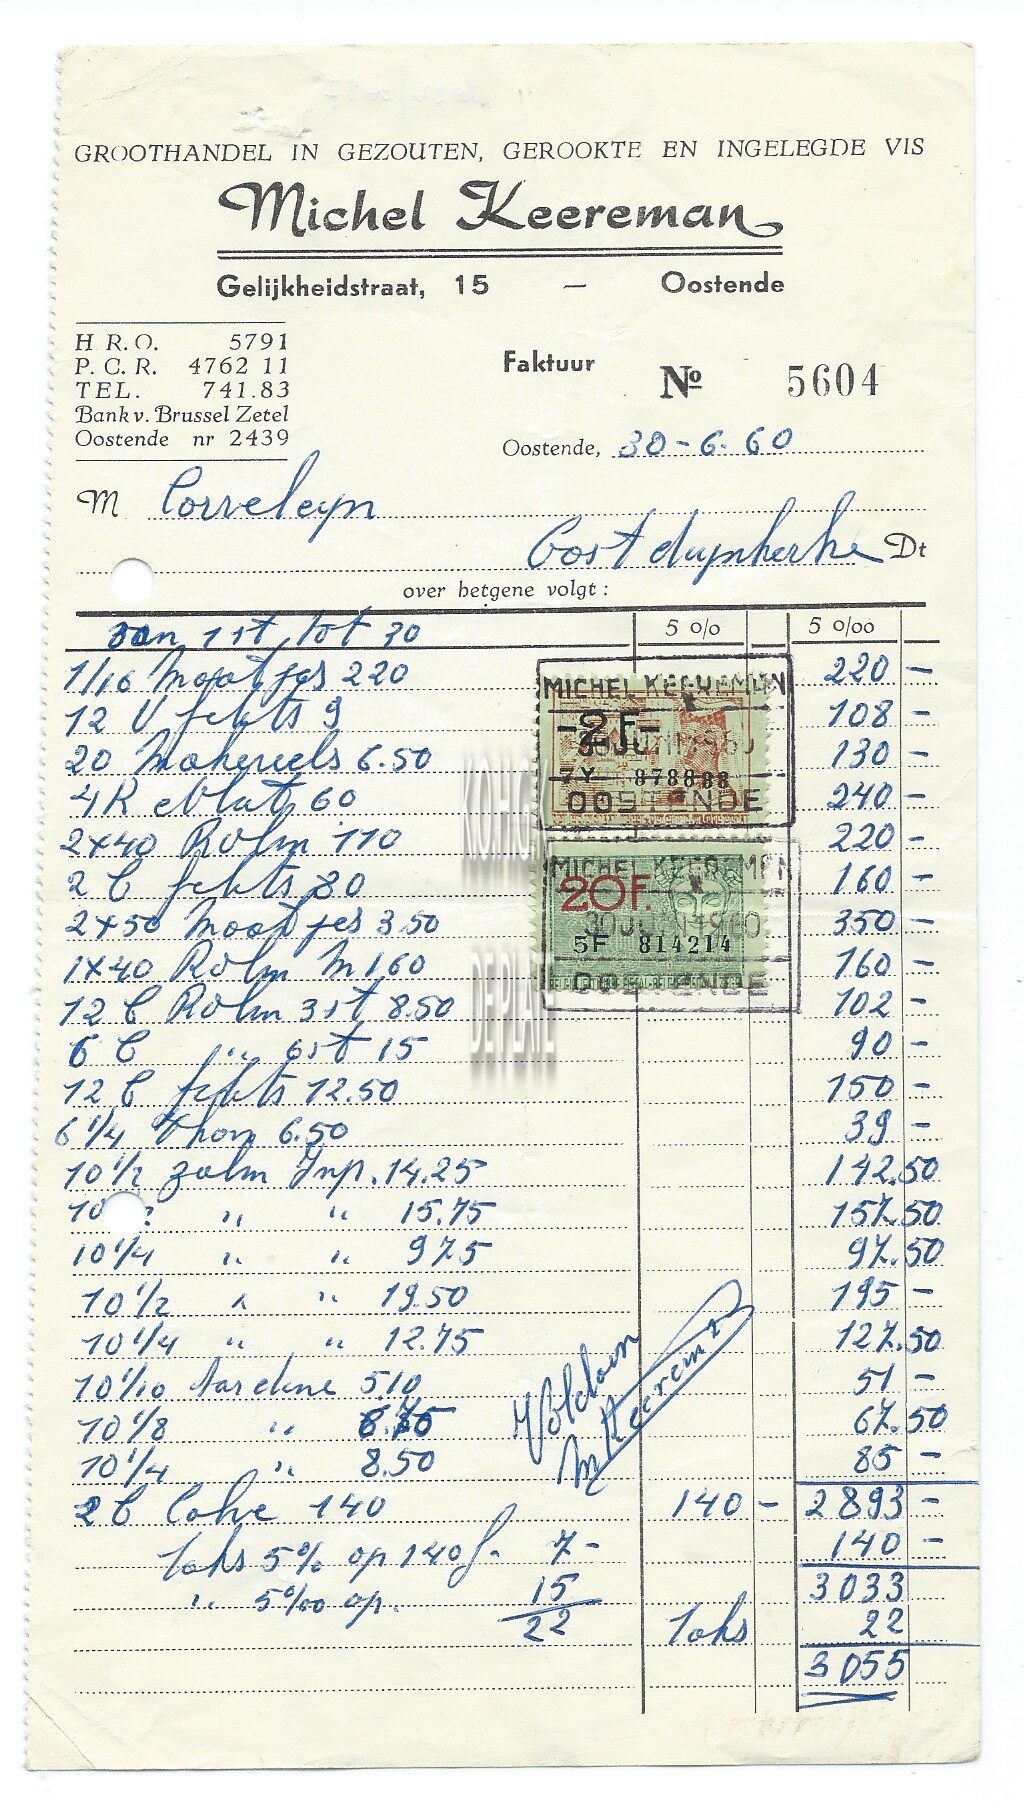 GROOTHANDEL IN GEZOUTEN, GEROOKTE EN INGELEGDE VIS
Michel Keereman
Gelijkheidstraat, 15 — Oostende
H R.O. 5791
P.C.R. 4762 11
TEL. 741.83
Bank v. Brussel Zetel
Oostende nr 2439
Faktuur Nº 5604
Oostende, 30-6-60
M Correleyn
Oostduynkerke Dt
over hetgene volgt :
van 1st tot 30 5 % 5 %00
1/16 Maatjes 220 220 -
12 V filets 9 108 -
20 Makereels 6.50 130 -
60 240 -
2x40 Rolm 110 220 -
2 C filets 80 160 -
2x50 Maatjes 3.50 350 -
1x40 Rolm M 160 160 -
12 C Rolm 3st 8.50 102 -
6 C " 6st 15 90 -
12 C filets 12.50 150 -
6 1/4 thon 6.50 39 -
10 1/2 zalm Imp. 14.25 142.50
10 " " 15.75 157.50
10 1/4 " " 975 97.50
10 1/2 " " 19.50 195 -
10 1/4 " " 12.75 127.50
10 1/10 Sardine 5.10 51 -
10 1/8 " 6.75 67.50
10 1/4 " 8.50 85 -
2 C 140 140 - 2893 -
Taks 5% op 140 f. 7 - 140 -
" 5%00 op. 15 3033
22 Taks 22
3055
Voldaan
M Keereman
MICHEL KEEREMAN
-2F-
30 JUNI 1960
7Y 878888
OOSTENDE
MICHEL KEEREMAN
20F.
30 JUNI 1960
5F 814214
OOSTENDE
KOHG
DEPLATE